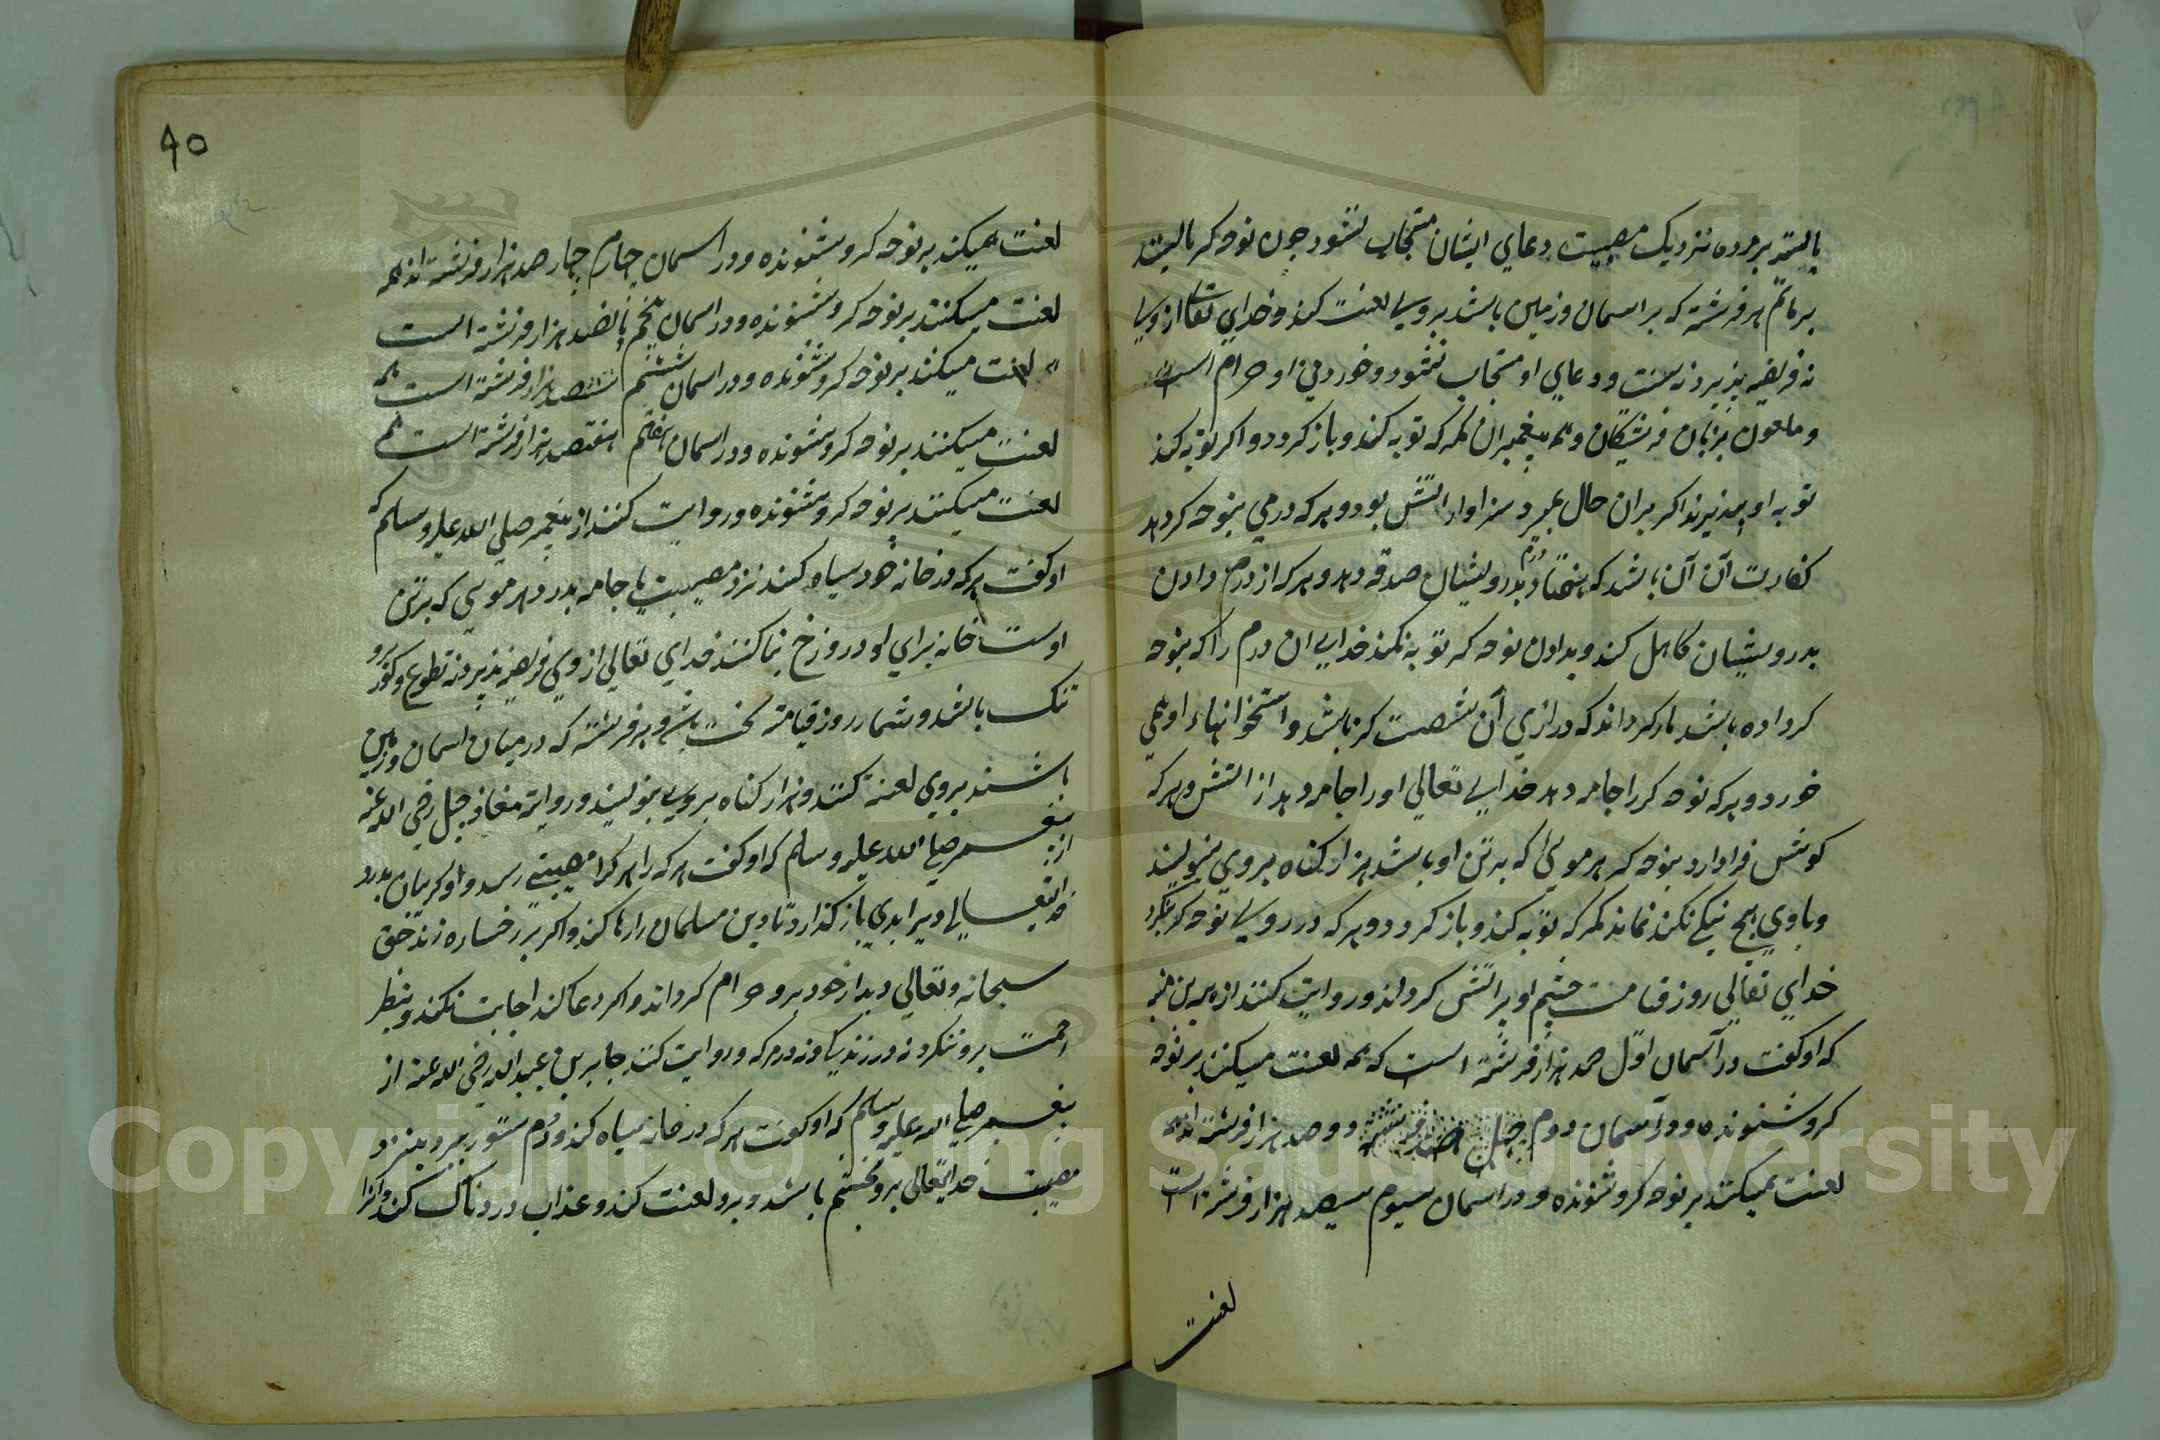 بایستد بر مرده نزدیک مصیبت دعای ایشان مستجاب نشود چون نوحه کر بایستد
بر ماتم هر فرشته که بر اسمان و زمین باشد بر وی لعنت کند و خدای تعالی از وی
نه فریضه پذیرد نه سنت و دعای او مستجاب نشود و خوردنی او حرام است
و ملعون بزبان فرشتکان و همه پیغمبران مکر که توبه کند و باز کردد و اکر توبه کند
توبه او بپذیرند اکر بران حال بمیرد سزاوار اتش بود و هر که درمی بنوحه کر دهد
کفارت آن آن باشد که هفتاد درم بدرویشان صدقه دهد و هر که از درم دادن
بدرویشان کاهل کند و بدادن نوحه کر توبه نکند خدای ان درم را که بنوحه
کر داده باشد مار کرداند که درازی آن شصت کز باشد و استخوانهاء او همی
خورد و هر که نوحه کر را جامه دهد خدای تعالی او را جامه دهد از اتش و هر که
کوش فرا دارد بنوحه کر هر مویی که به تن او باشد هزار کناه بر وی بنویسند
و باوی هیچ نیکی نکند نماند مکر که توبه کند و باز کردد و هر که در روی نوحه کر بنکرد
خدای تعالی روز قیامت چشم او پر اتش کرداند و روایت کنند از
که او کفت در آسمان اول صد هزار فرشته است که همه لعنت میکنند بر نوحه
کر و شنونده و در آسمان دوم دو صد هزار فرشته اند همه
لعنت میکنند بر نوحه کر و شنونده و در اسمان سیوم سیصد هزار فرشته است
لعنت
٩٥
لعنت همیکند بر نوحه کر و شنونده و در اسمان چهارم چهار صد هزار فرشته اند همه
لعنت میکنند بر نوحه کر و شنونده و در اسمان پنجم پانصد هزار فرشته است
لعنت میکنند بر نوحه کر و شنونده و در اسمان ششم ششصد هزار فرشته است همه
لعنت میکنند بر نوحه کر و شنونده و در اسمان هفتم هفتصد هزار فرشته است همه
لعنت میکنند بر نوحه کر و شنونده و روایت کنند از پیغمبر صلی الله علیه و سلم که
او کفت هر که در خانه خود سیاه کند نزد مصیبت یا جامه بدرد هر مویی که بر تن
اوست خانه برای او در دوزخ بنا کنند خدای تعالی از وی فریضه نپذیرد نه تطوع و کور برو
تنک باشد و شمار روز قیامت سخت باشد و هر فرشته که در میان اسمان و زمین
باشند بر وی لعنت کنند و هزار کناه بر وی بنویسند و روایت معاذ جبل رضی الله عنه
از پیغمبر صلی الله علیه و سلم که او کفت هر که را هر کرا مصیبتی رسد و او کریبان بدرد
خدایتعالی ویرا بدی باز کذارد تا دین مسلمان را رها کند و اکر بر رخساره زند حق
سبحانه و تعالی دیدار خود برو حرام کرداند و اکر دعا کند اجابت نکند و بنظر
رحمت برو ننکرد نه در زندکی و نه در مرکه و روایت کند جابر بن عبدالله رضی الله عنه از
پیغمبر صلی الله علیه و سلم که او کفت هر که در خانه سیاه کند و دم ستور ببرد بنزد
مصیبت خدایتعالی برو بخشم باشد و برو لعنت کند و عذاب دردناک کند و اکر
Copyright © King Saud University